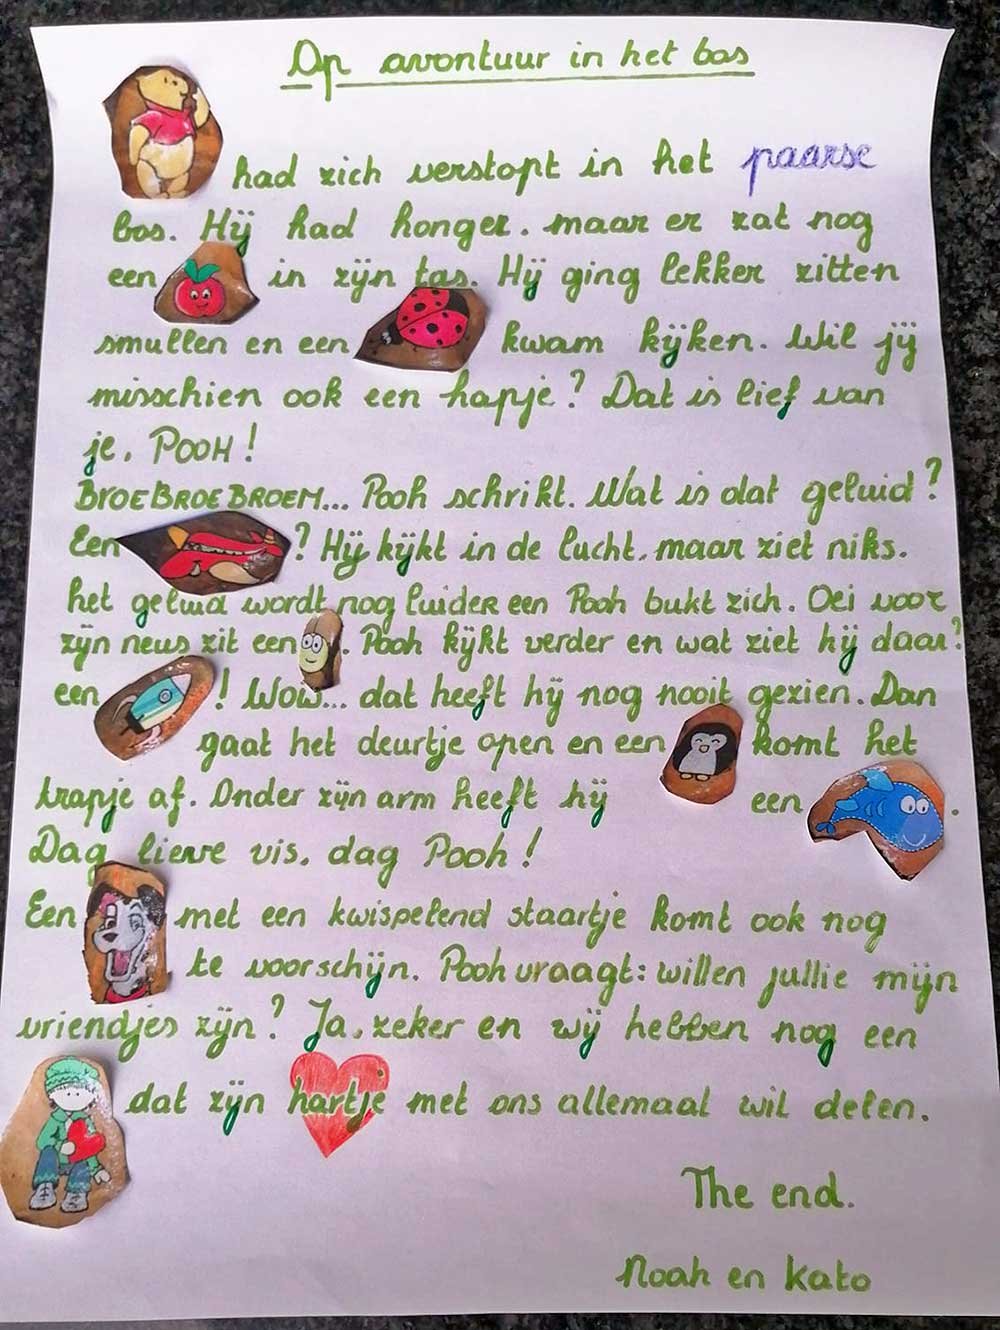 Op avontuur in het bos
had zich verstopt in het paarse
bos. Hij had honger, maar er zat nog
een in zijn tas. Hij ging lekker zitten
smullen en een kwam kijken. Wil jij
misschien ook een hapje? Dat is lief van
je, POOH!
BROEBROEBROEM... Pooh schrikt. Wat is dat geluid?
Een ? Hij kijkt in de lucht, maar ziet niks.
het geluid wordt nog luider een Pooh bukt zich. Oei voor
zijn neus zit een . Pooh kijkt verder en wat ziet hij daar?
een ! Wow... dat heeft hij nog nooit gezien. Dan
gaat het deurtje open en een komt het
trapje af. Onder zijn arm heeft hij een .
Dag lieve vis, dag Pooh!
Een met een kwispelend staartje komt ook nog
te voorschijn. Pooh vraagt: willen jullie mijn
vriendjes zijn? Ja, zeker en wij hebben nog een
dat zijn hartje met ons allemaal wil delen.
The end.
Noah en Kato